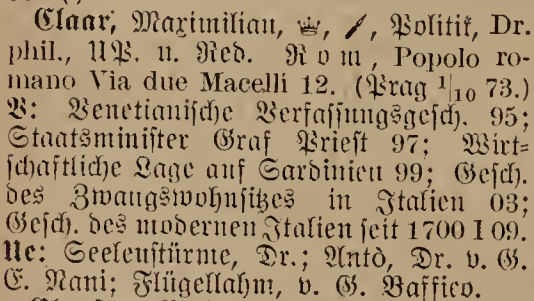 Claar, Maximilian, ♕, Politik, Dr.
phil., UP. u. Red. Rom, Popolo ro-
mano Via due Macelli 12. (Prag 1/10 73.)
V: Venetianische Verfassungsgesch. 95;
Staatsminister Graf Priest 97; Wirt-
schaftliche Lage auf Sardinien 99; Gesch.
des Zwangswohnsitzes in Italien 03;
Gesch. des modernen Italien seit 1700 I 09.
Ue: Seelenstürme, Dr.; Antò, Dr. v. G.
E. Nani; Flügellahm, v. G. Baffico.